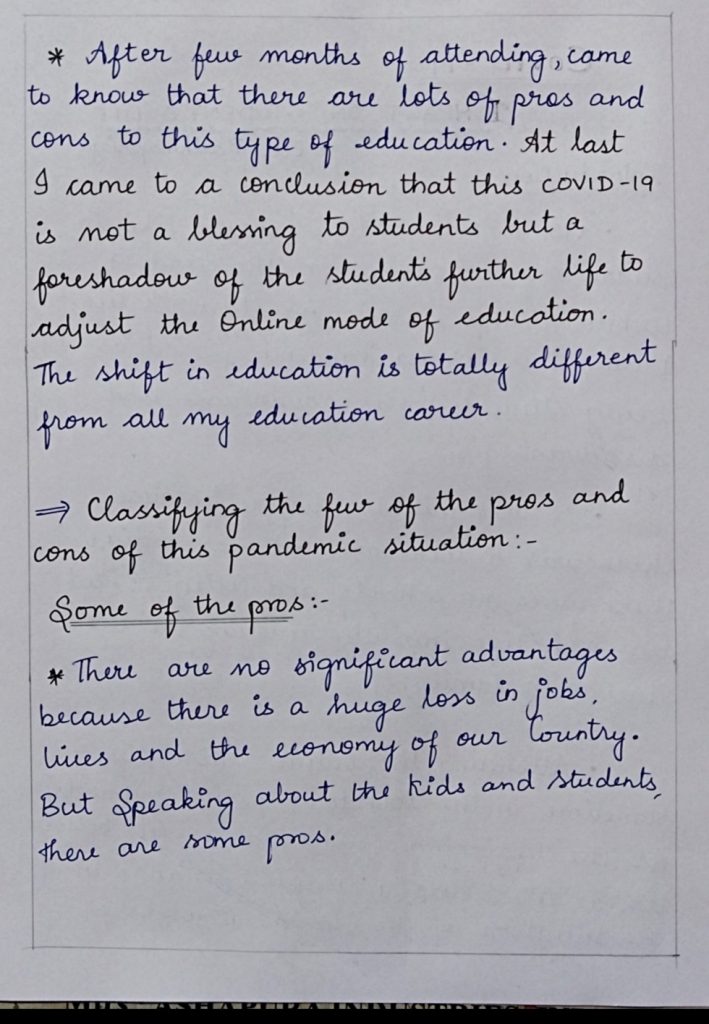 * After few months of attending, came
to know that there are lots of pros and
cons to this type of education. At last
I came to a conclusion that this COVID-19
is not a blessing to students but a
foreshadow of the student's further life to
adjust the Online mode of education.
The shift in education is totally different
from all my education career.
⇒ Classifying the few of the pros and
cons of this pandemic situation:-
Some of the pros:-
* There are no significant advantages
because there is a huge loss in jobs,
lives and the economy of our Country.
But Speaking about the kids and students,
there are some pros.